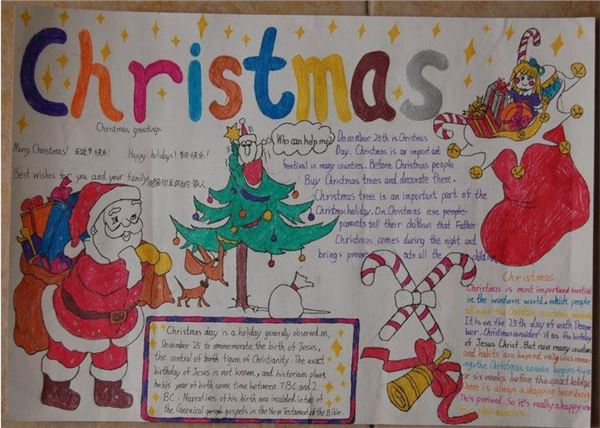 Christmas
Christmas greetings
Merry Christmas! 圣诞节快乐!
Happy holidays! 节日快乐!
Best wishes for you and your family!
Who can help me?
December 25th is Christmas
Day. Christmas is an important
festival in many counties. Before Christmas people
Buy Christmas trees and decorate them.
Christmas tree is an important part of the
Christmas holiday. On Christmas eve people
parents tell their children that Father
Christmas comes during the night and
brings presents to all the children
Christmas day is a holiday generally observed on
December 25 to commemorate the birth of Jesus,
the central of birth figure of Christianity. The exact
birthday of Jesus is not known, and historians
his year of birth some time between 7 BC and 2
BC. Narratives of his birth are included in
the Canonical gospels in the New Testament of the Bible.
Christmas
Christmas is most important festival
in the western world, which people
all over the
It is on the 25th day of
ber. Christians consider it as the birthday
of Jesus Christ. But now many countries
and habits are beyond religious
ing, the Christmas season begins five
or six weeks before the exact holiday
There is always a shopping boom
This period. So it's really a happy